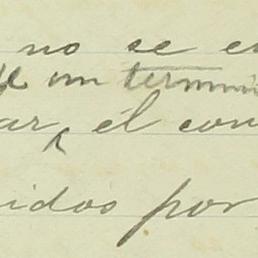 no se e
un termin
ar, él con
idos por